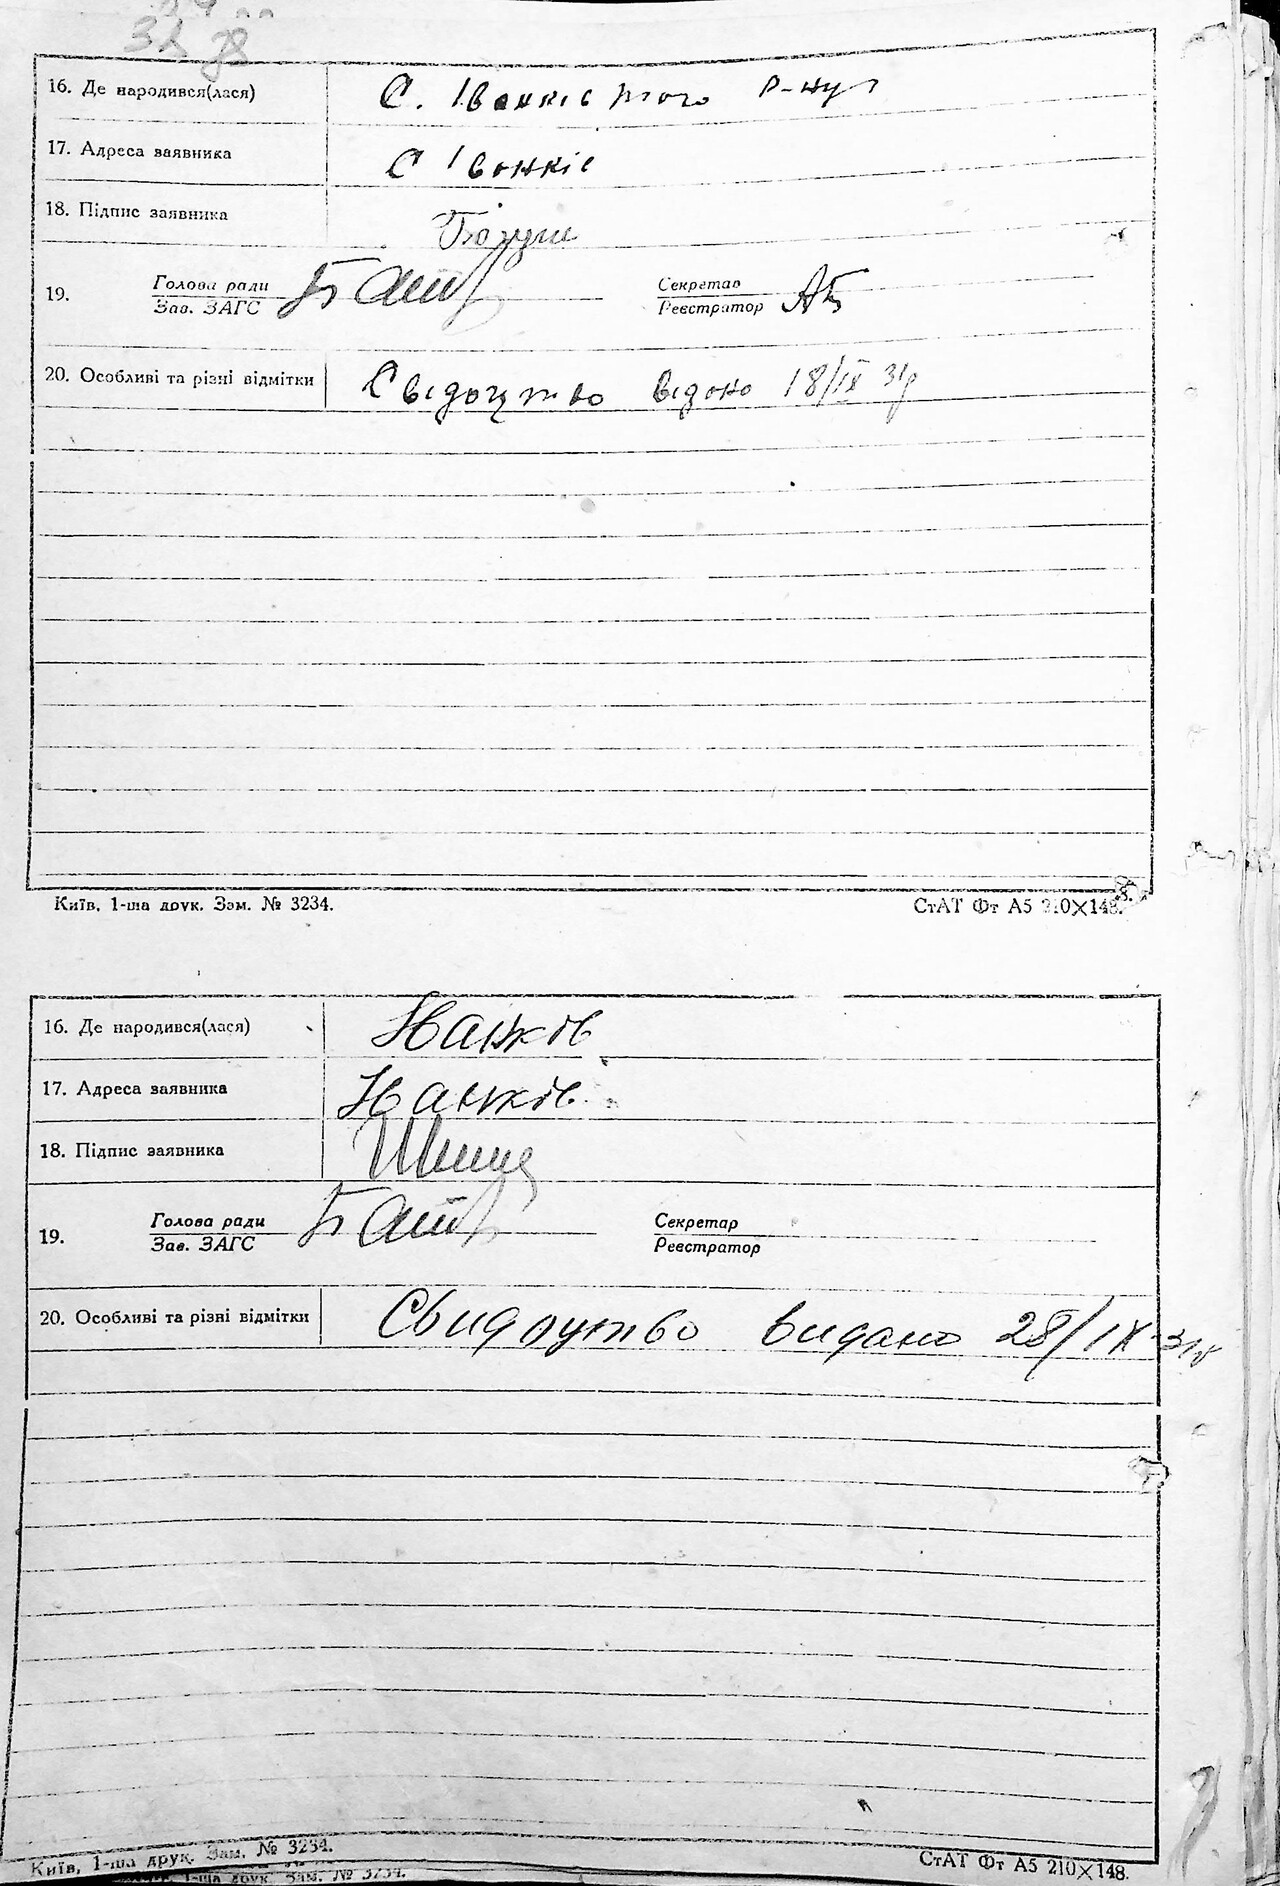 38
16. Де народився(лася) С. Іванківского р-ну
17. Адреса заявника С Іванків
18. Підпис заявника
19. Голова ради Секретар
Зав. ЗАГС Реєстратор
20. Особливі та різні відмітки Свідоцтво відано 18/IX 31р
Київ, 1-ша друк. Зам. № 3234. СтАТ Фт А5 210×148.
16. Де народився(лася) Иванків
17. Адреса заявника Иванків
18. Підпис заявника
19. Голова ради Секретар
Зав. ЗАГС Реєстратор
20. Особливі та різні відмітки Свидоцтво видано 28/IX 31р
Київ, 1-ша друк. Зам. № 3234. СтАТ Фт А5 210×148.
1-ша друк. Зам. № 3234.